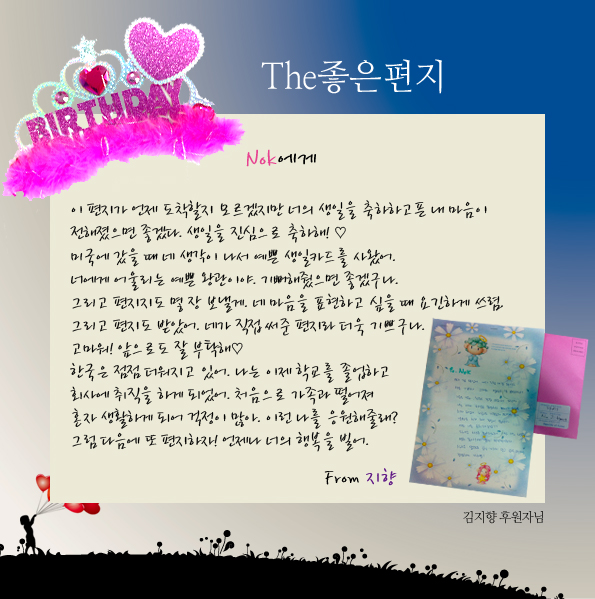 BIRTHDAY
The좋은편지
Nok에게
이 편지가 언제 도착할지 모르겠지만 너의 생일을 축하하고픈 내 마음이
전해졌으면 좋겠다. 생일을 진심으로 축하해! ♡
미국에 갔을 때 네 생각이 나서 예쁜 생일카드를 사왔어.
너에게 어울리는 예쁜 왕관이야. 기뻐해줬으면 좋겠구나.
그리고 편지지도 몇 장 보낼게. 네 마음을 표현하고 싶을 때 요긴하게 쓰렴.
그리고 편지도 받았어. 네가 직접 써준 편지라 더욱 기쁘구나.
고마워! 앞으로도 잘 부탁해♡
한국은 점점 더워지고 있어. 나는 이제 학교를 졸업하고
회사에 취직을 하게 되었어. 처음으로 가족과 떨어져
혼자 생활하게 되어 걱정이 많아. 이런 나를 응원해줄래?
그럼 다음에 또 편지하자! 언제나 너의 행복을 빌어.
From 지향
To. Nok
김지향 후원자님